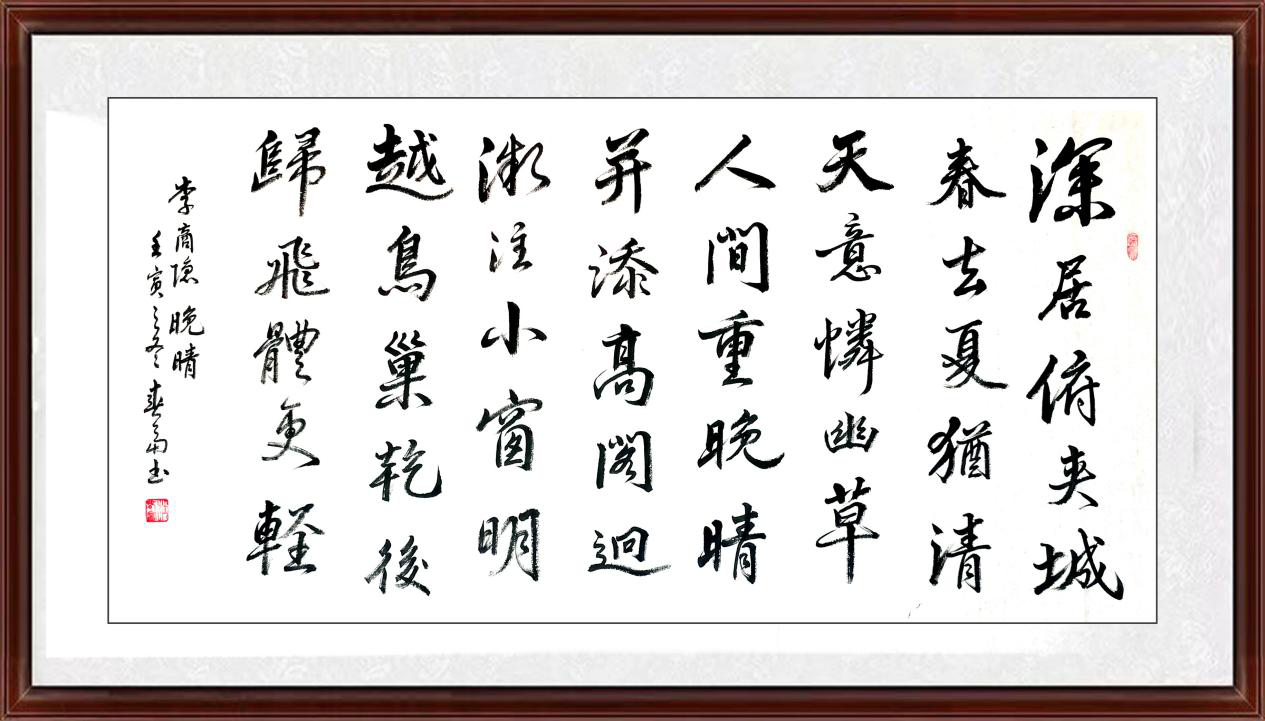 深居俯夹城
春去夏猶清
天意憐幽草
人間重晚晴
并添高閣迥
微注小窗明
越鳥巢乾後
歸飛體更輕
李商隐晚晴
壬寅之冬